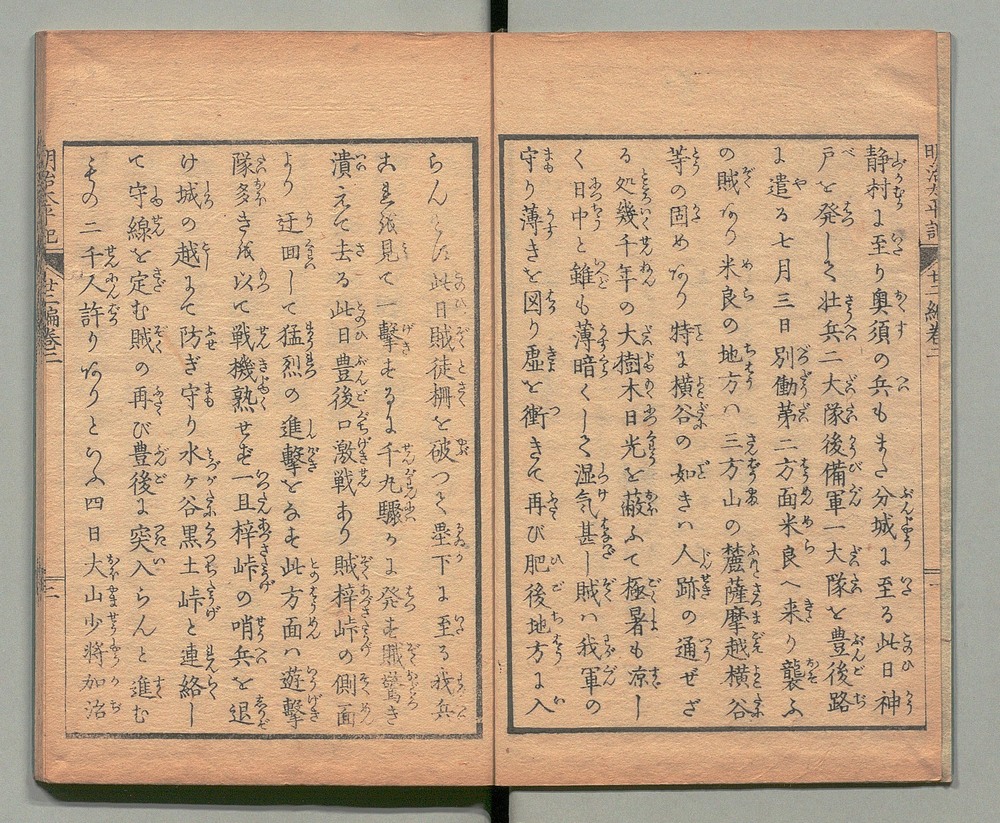 静村に至り奥須の兵もまた分城に至る此日神
戸を発して壮兵二大隊後備軍一大隊を豊後路
に遣る七月三日別働第二方面米良へ来り襲ふ
の賊なり米良の地方ハ三方山の麓薩摩越横谷
等の固めなり特に横谷の如きハ人跡の通ぜざ
る処幾千年の大樹木日光を蔽ふて極暑も凉し
く日中と雖も薄暗くして湿気甚し賊ハ我軍の
守り薄きを図り虚を衝きて再び肥後地方に入
らん此日賊徒柵を破つて塁下に至る我兵
これを見て一撃するに千丸驟かに発す賊驚き
潰えて去る此日豊後口激戦あり賊梓峠の側面
より迂回して猛烈の進撃をなす此方面ハ遊撃
隊多きを以て戦機熟せず一旦梓峠の哨兵を退
け城の越まで防ぎ守り水ヶ谷黒土峠と連絡し
て守線を定む賊の再び豊後に突入らんと進む
もの二千人許りなりといふ四日大山少将加治
明治太平記
廿二編巻二